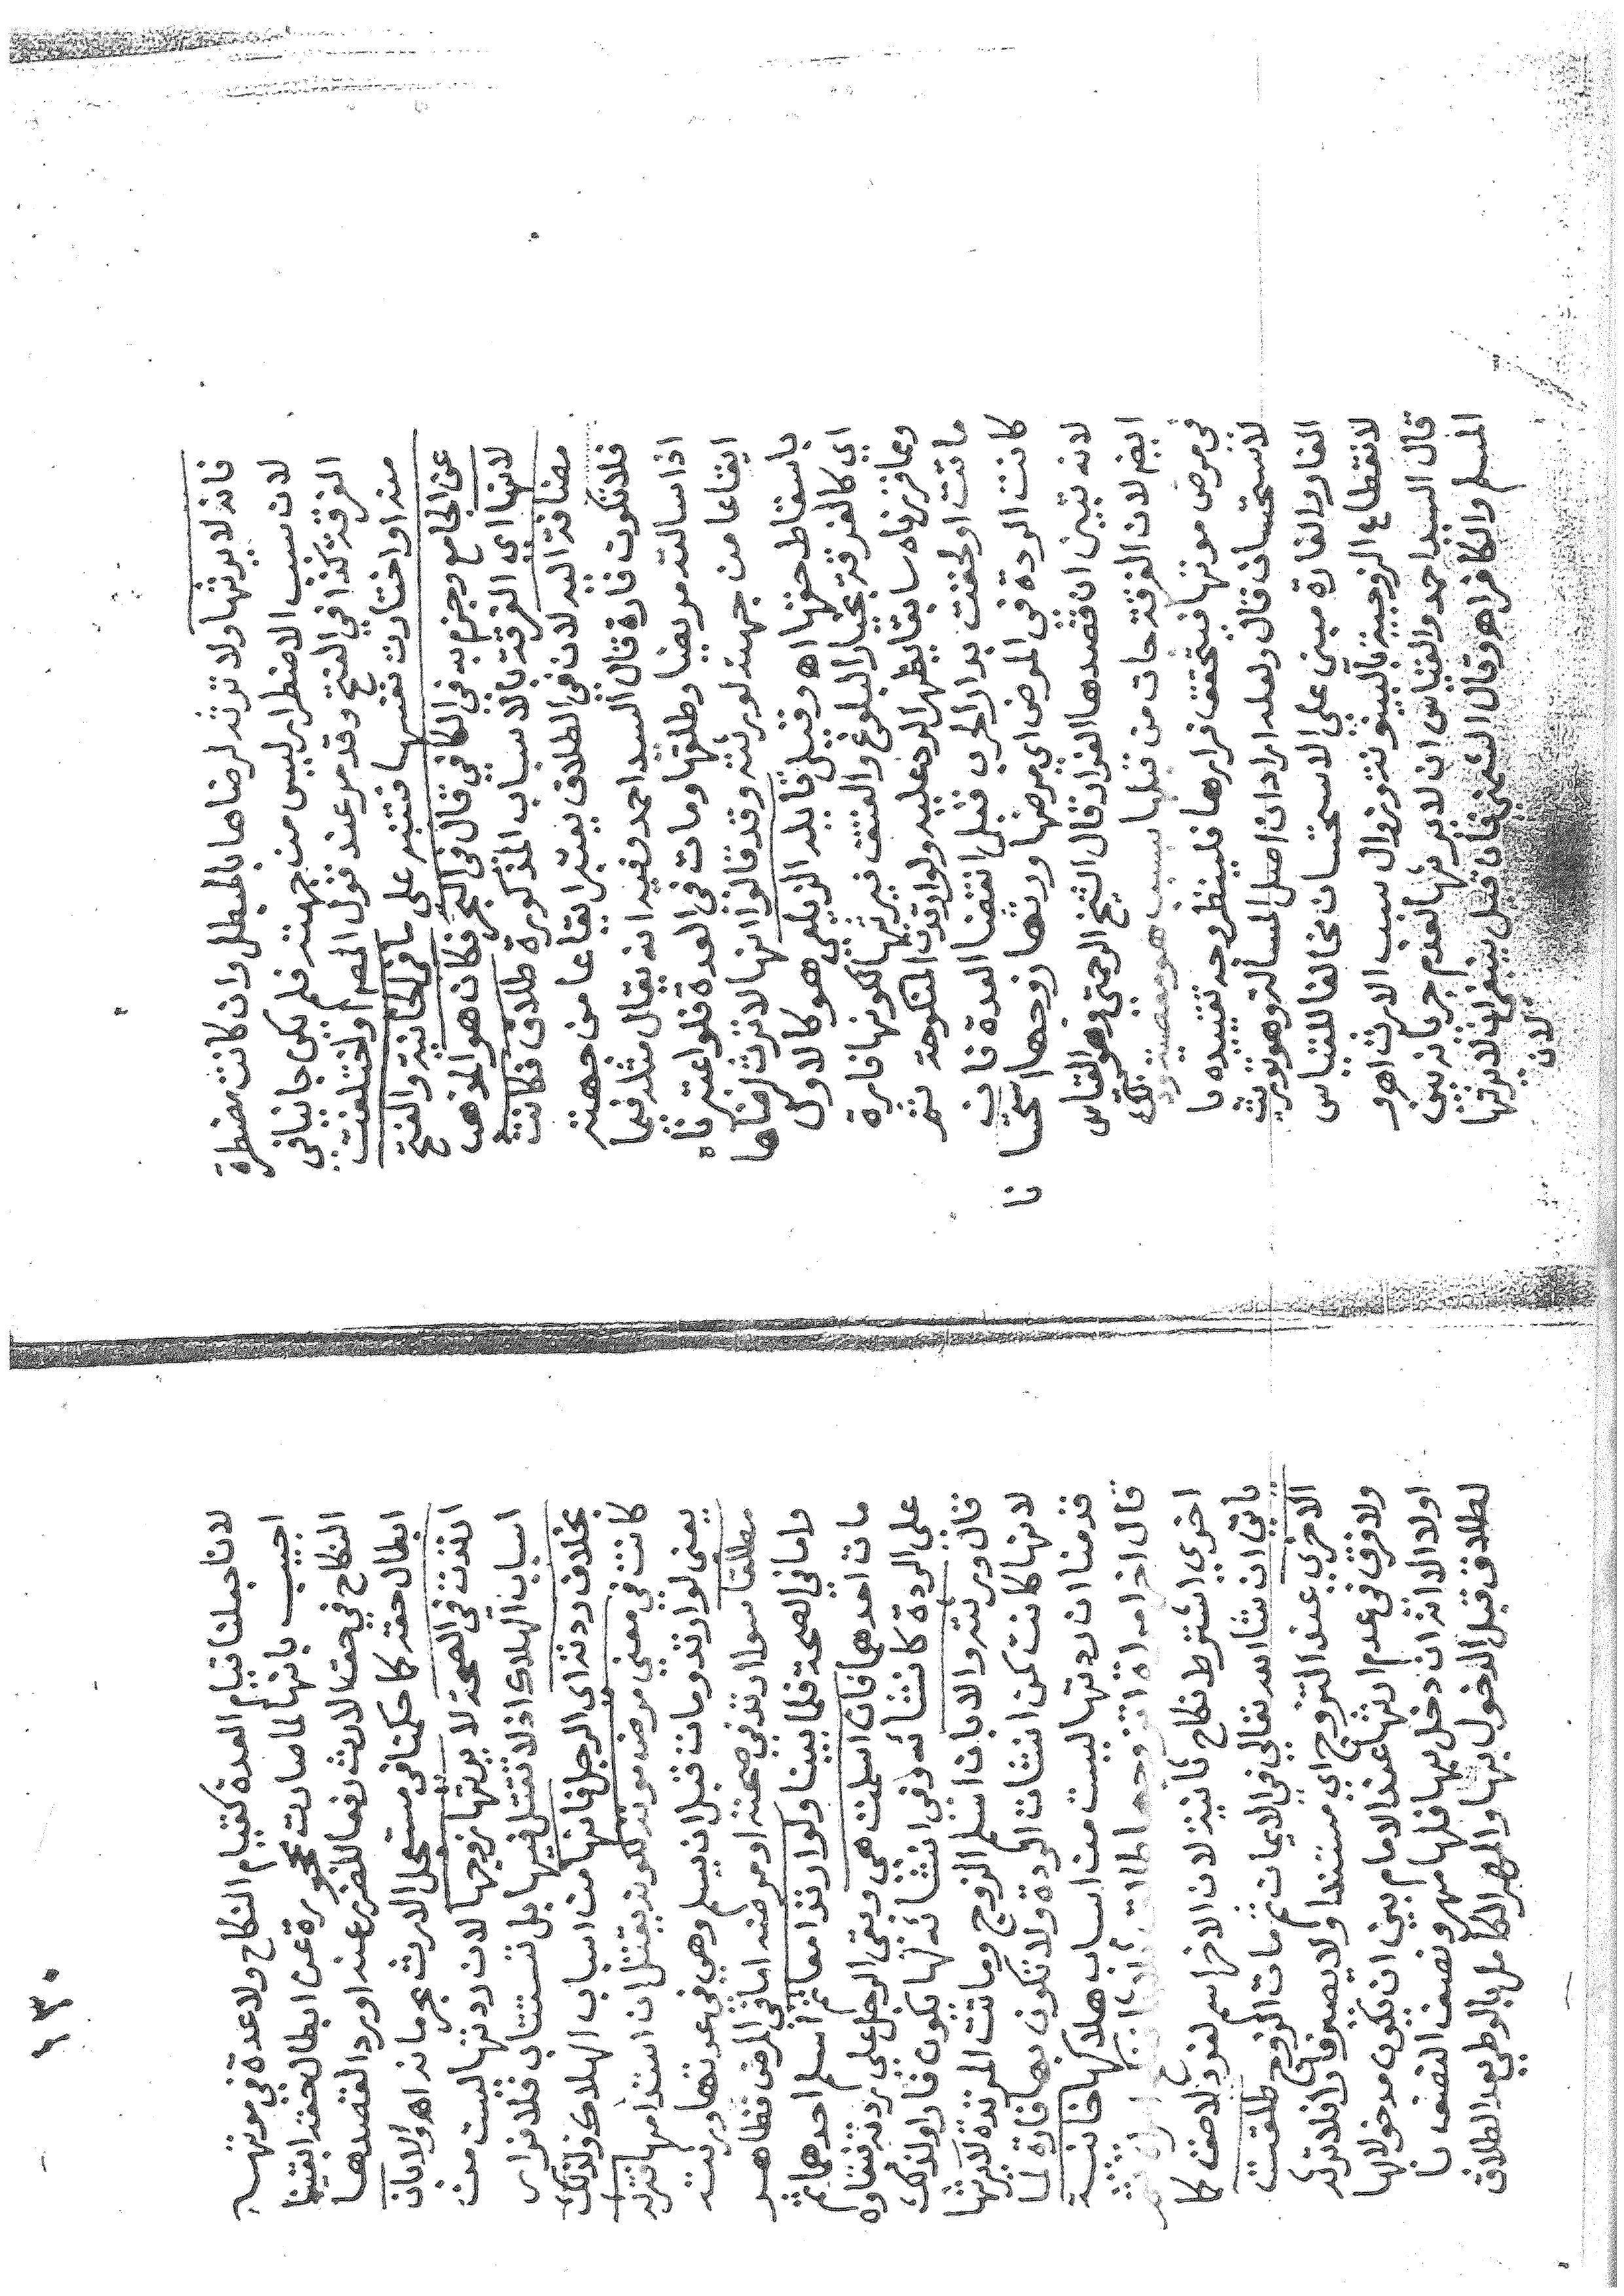 فانه لا يرثها ولا ترثه لرضاها بالمبطل وان كانت مضطرة
لان سبب الاضطرار ليس من جهته فلم يكن جانيا في
الفرقة كذا في الفتح وقد مر عند قول المصـ او اختلعت
منه او اختارت نفسها فتنبه على ما في الخانية والفتح
عن الجامع وجزم به في الكافي قال في البحر فكان هو المذهب
لانها اي الفرقة بالاسباب المذكورة طلاق فكانت
مضافة اليه لان في الطلاق يعتبر ايقاعا من جهته
فلا تكون فارة قال السيد احمد وفيه انه يقال مثله فيما
اذا سالته مريضا وطلقها ومات في العدة فلو اعتبرناه
ايقاعا من جهته لورثته وقد قالوا انها لا ترث لرضاها
باسقاط حقها اه وقيل قايله الزيلعي هو كالاول
اي كالفرقة بخيار البلوغ والعتق فيرثها لكونها فارة
وبما قررناه سابقا يظهر الرد عليه ولو ارتدت المنكوحة ثم
ماتت او لحقت بدار الحرب قبل انقضا العدة فان
كانت الردة في المرض اي مرضها ورثها زوجها استحسانا
لانه تبين ان قصدها الفرار قال الشيخ الرحمتي وهو القياس
ايضا لان الفرقة جات من قبلها بسبب هو معصية وذلك
في مرض موتها فتحقق فرارها فلينظر وجه تقييده با
لاستحسان قال ولعله اراد ان اصل المسالة وهو توريث
الفار والفارة مبني على الاستحسان مخالفا للقياس
لانقطاع الزوجية بالبينونة وزوال سبب الارث اهو
قال السيد احمد والقياس ان لا يرثها لعدم جريانه بين
المسلم والكافر اه وقال الشمني فان قيل ينبغي ان لا يرثها
لان
١٣٠
لانا جعلنا قيام العدة كقيام النكاح ولا عدة في موتها
اجيب بانها لما صارت محجورة عن ابطال حقه ابقينا
النكاح في حق الارث دفعا للضرر عنه او رد القصدها
ابطال حقه كما حكمنا في مستعجل الارث بحرمانه اه والا بان
ارتدت في الصحة لا يرثها زوجها لان ردتها ليست من
اسباب الهلاك اذ لا تقتل فيها بل تستتاب فلا فرار
بخلاف ردته اي الرجل فانها من اسباب الهلاك ولذلك
كانت في معنى مرض موته لكونه يقتل ان استدامها فترثه
يعني لو ارتد ومات قبل ان يسلم وهي في عدتها ورثت
مطلقا سوا ارتد في صحته او مرضه اما في المرض فظاهر
واما في الصحة فلما بينا ولو ارتدا معا ثم اسلم احدهما ثم
مات احدهما فان اسلمت هي وبقي الرجل على ردته فبقاوه
على الردة كانشائه وفي انشائه لها يكون فارا ولذلك
قال ورثته والا بان اسلم الزوج وماتت المرتدة لا يرثها
لانها كانت كمن انشات الردة ولا تكون بها فارة لما
قدمنا ان ردتها ليست من اسباب هلاكها خانية
قال اخر امراة اتزوجها طالق ثلاثا
اخرى اشترط نكاح ثانية لان الاخر اسم لفرد لاحق كما
ياتي ان شا الله تعالى في الايمان ثم مات الزوج طلقت
الاخرى عند التزوج اي مستندا ولا يصير فارا فلا ترثه
ولا فرق في عدم ارثها عند الامام بين ان تكون مدخولا بها
اولا الا انه ان دخل بها فلها مهر ونصف النصف با
لطلاق قبل الدخول بها والمهر الكامل بالوطي بعد الطلاق